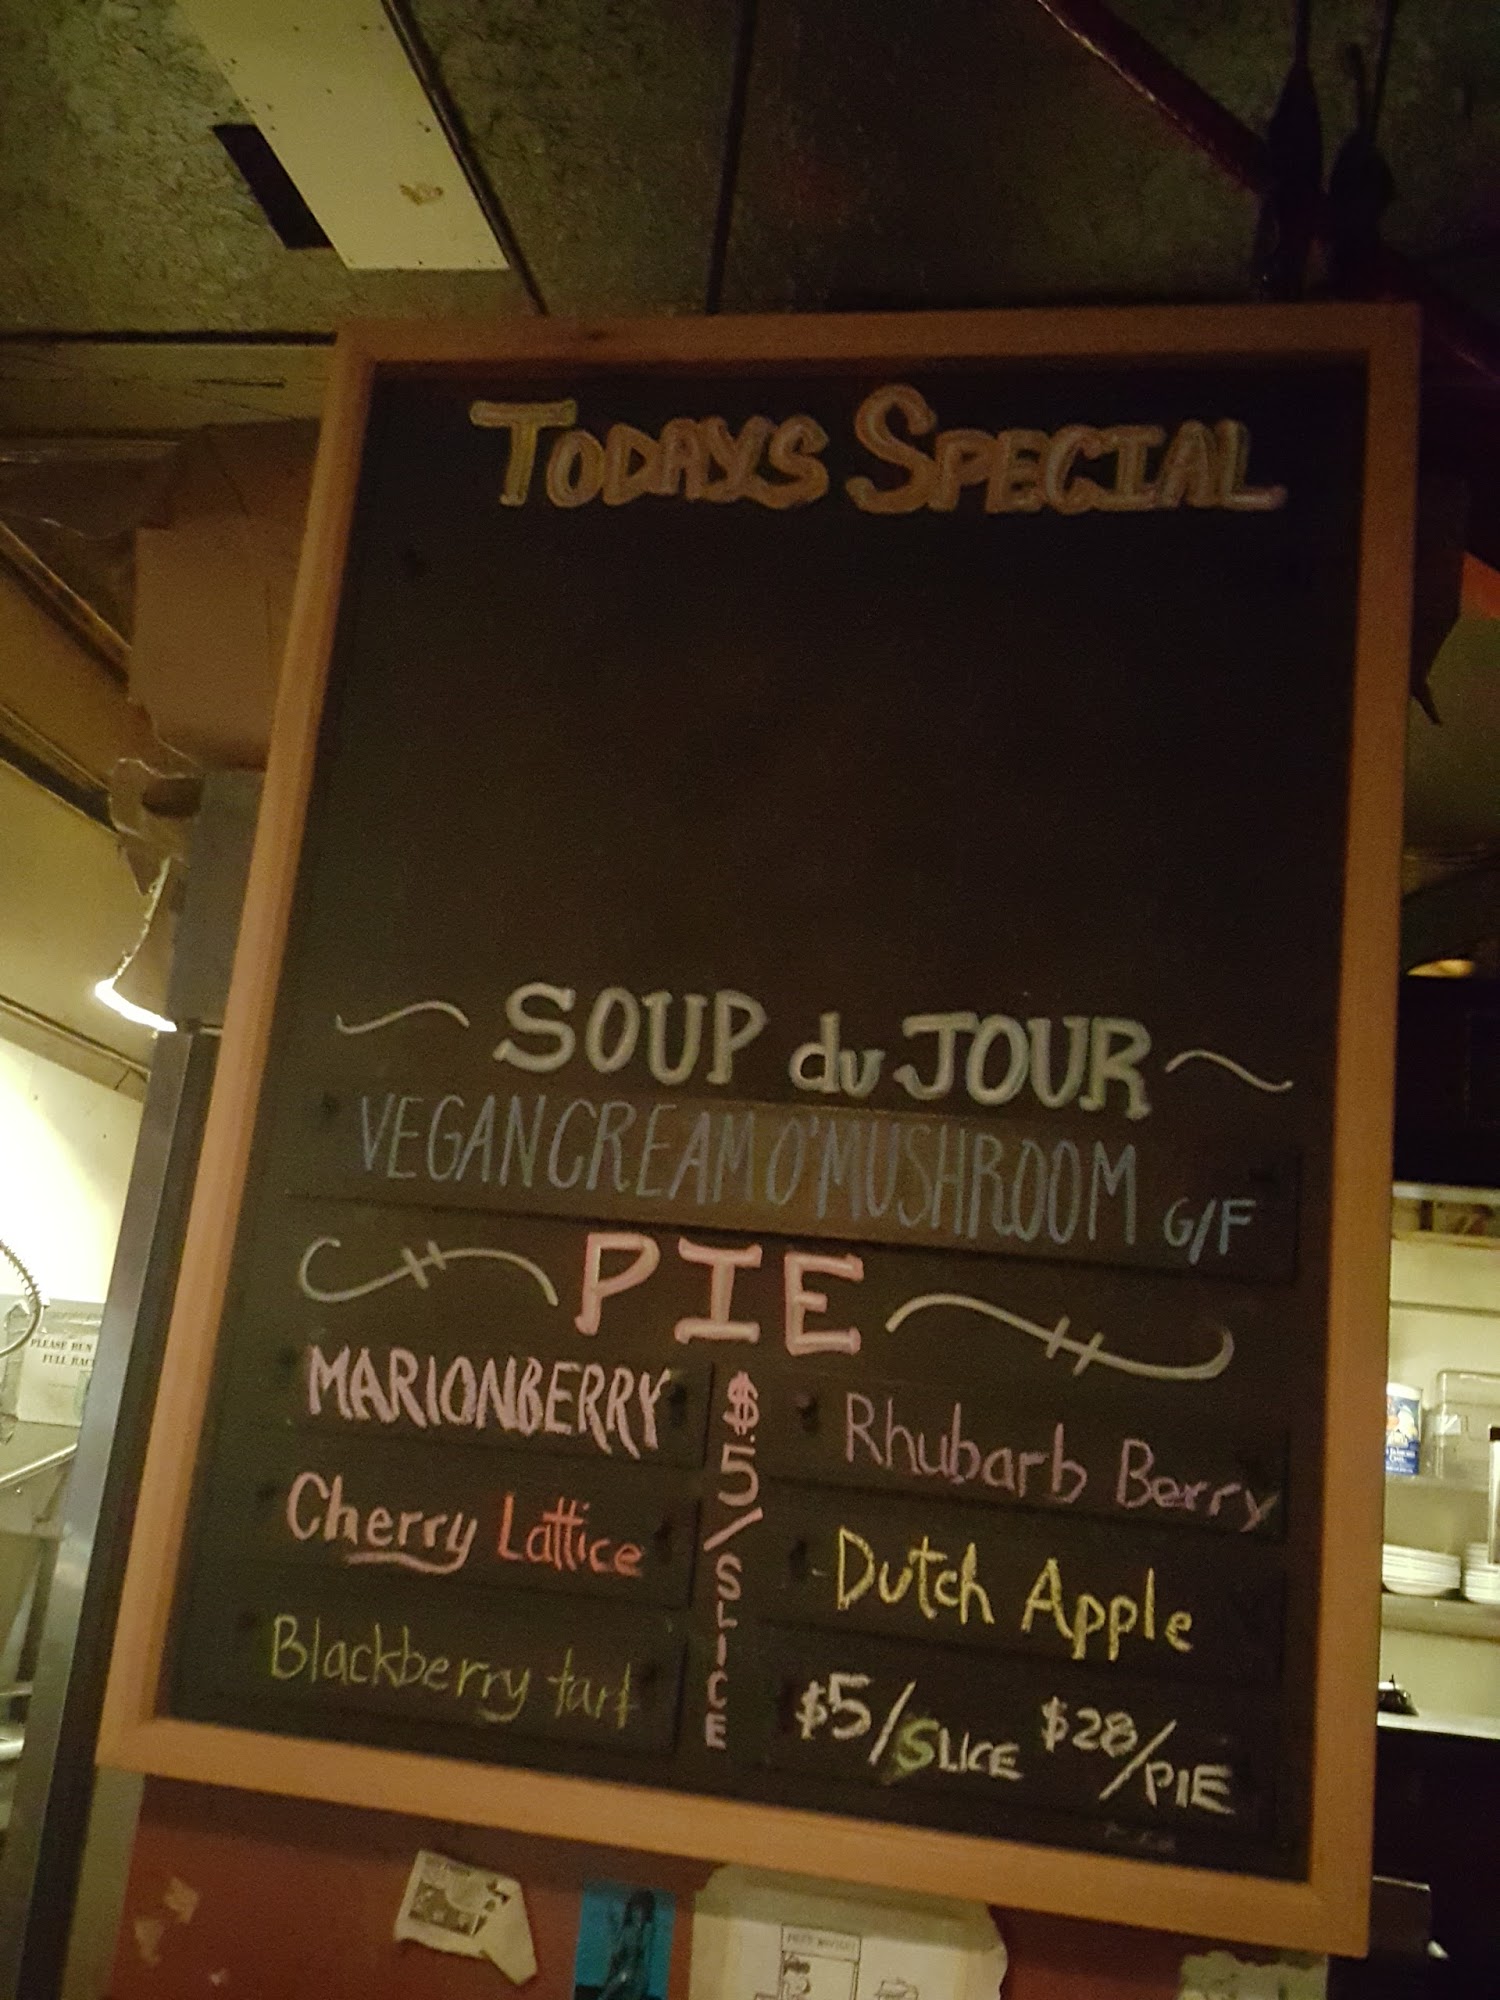 TODAYS SPECIAL
SOUP du JOUR
VEGAN CREAM O'MUSHROOM G/F
PIE
MARIONBERRY
Cherry Lattice
Blackberry tart
$5/SLICE
Rhubarb Berry
Dutch Apple
$5/SLICE $28/PIE
PLEASE RUN
FULL RAC